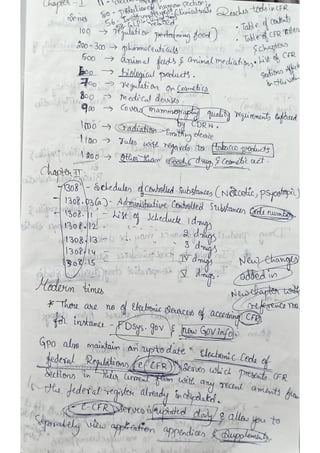 Chapter - I
Series
Reader tools in CFR
100 → regulation pertaining food)
: Table of contents
: Table of CFR
200-300 → pharmaceuticals
: chapters
500 → animal feeds & animal mediation.
: List of CFR
600 → biological products.
sections
700 → regulation on cosmetics
800 → Medical devises
900 → Covers mammography quality requirements enforced
by CDRH.
1000 → radiation - Emitting device
1100 → rules wise regards to tobacco products
1200 → other than food & drug & cosmetic act.
Chapter II
- 1308 - Schedules of controlled substances (Narcotic, Psycotropic)
- 1308.03(a) - Administrative Controlled Substances Code number
- 1308.11 - List of Schedule 1 drugs
- 1308.12 2 drugs
- 1308.13 3 drugs
- 1308.14 IV drugs
1308.15 V drugs
New changes
added in
New chapter with
reference no.
Modern times
* There are no of Electronic Services of accessing CFR
for instance - FDsys.gov & new GovInfo.
Gpo also maintain an upto date "Electronic Code of
federal Regulations (e-CFR) Serves which presents CFR
Sections in their current form with any recent amounts from
the federal register already integrated.
- E-CFR Service is updated daily & allow you to
Separately view application appendices & Supplements.